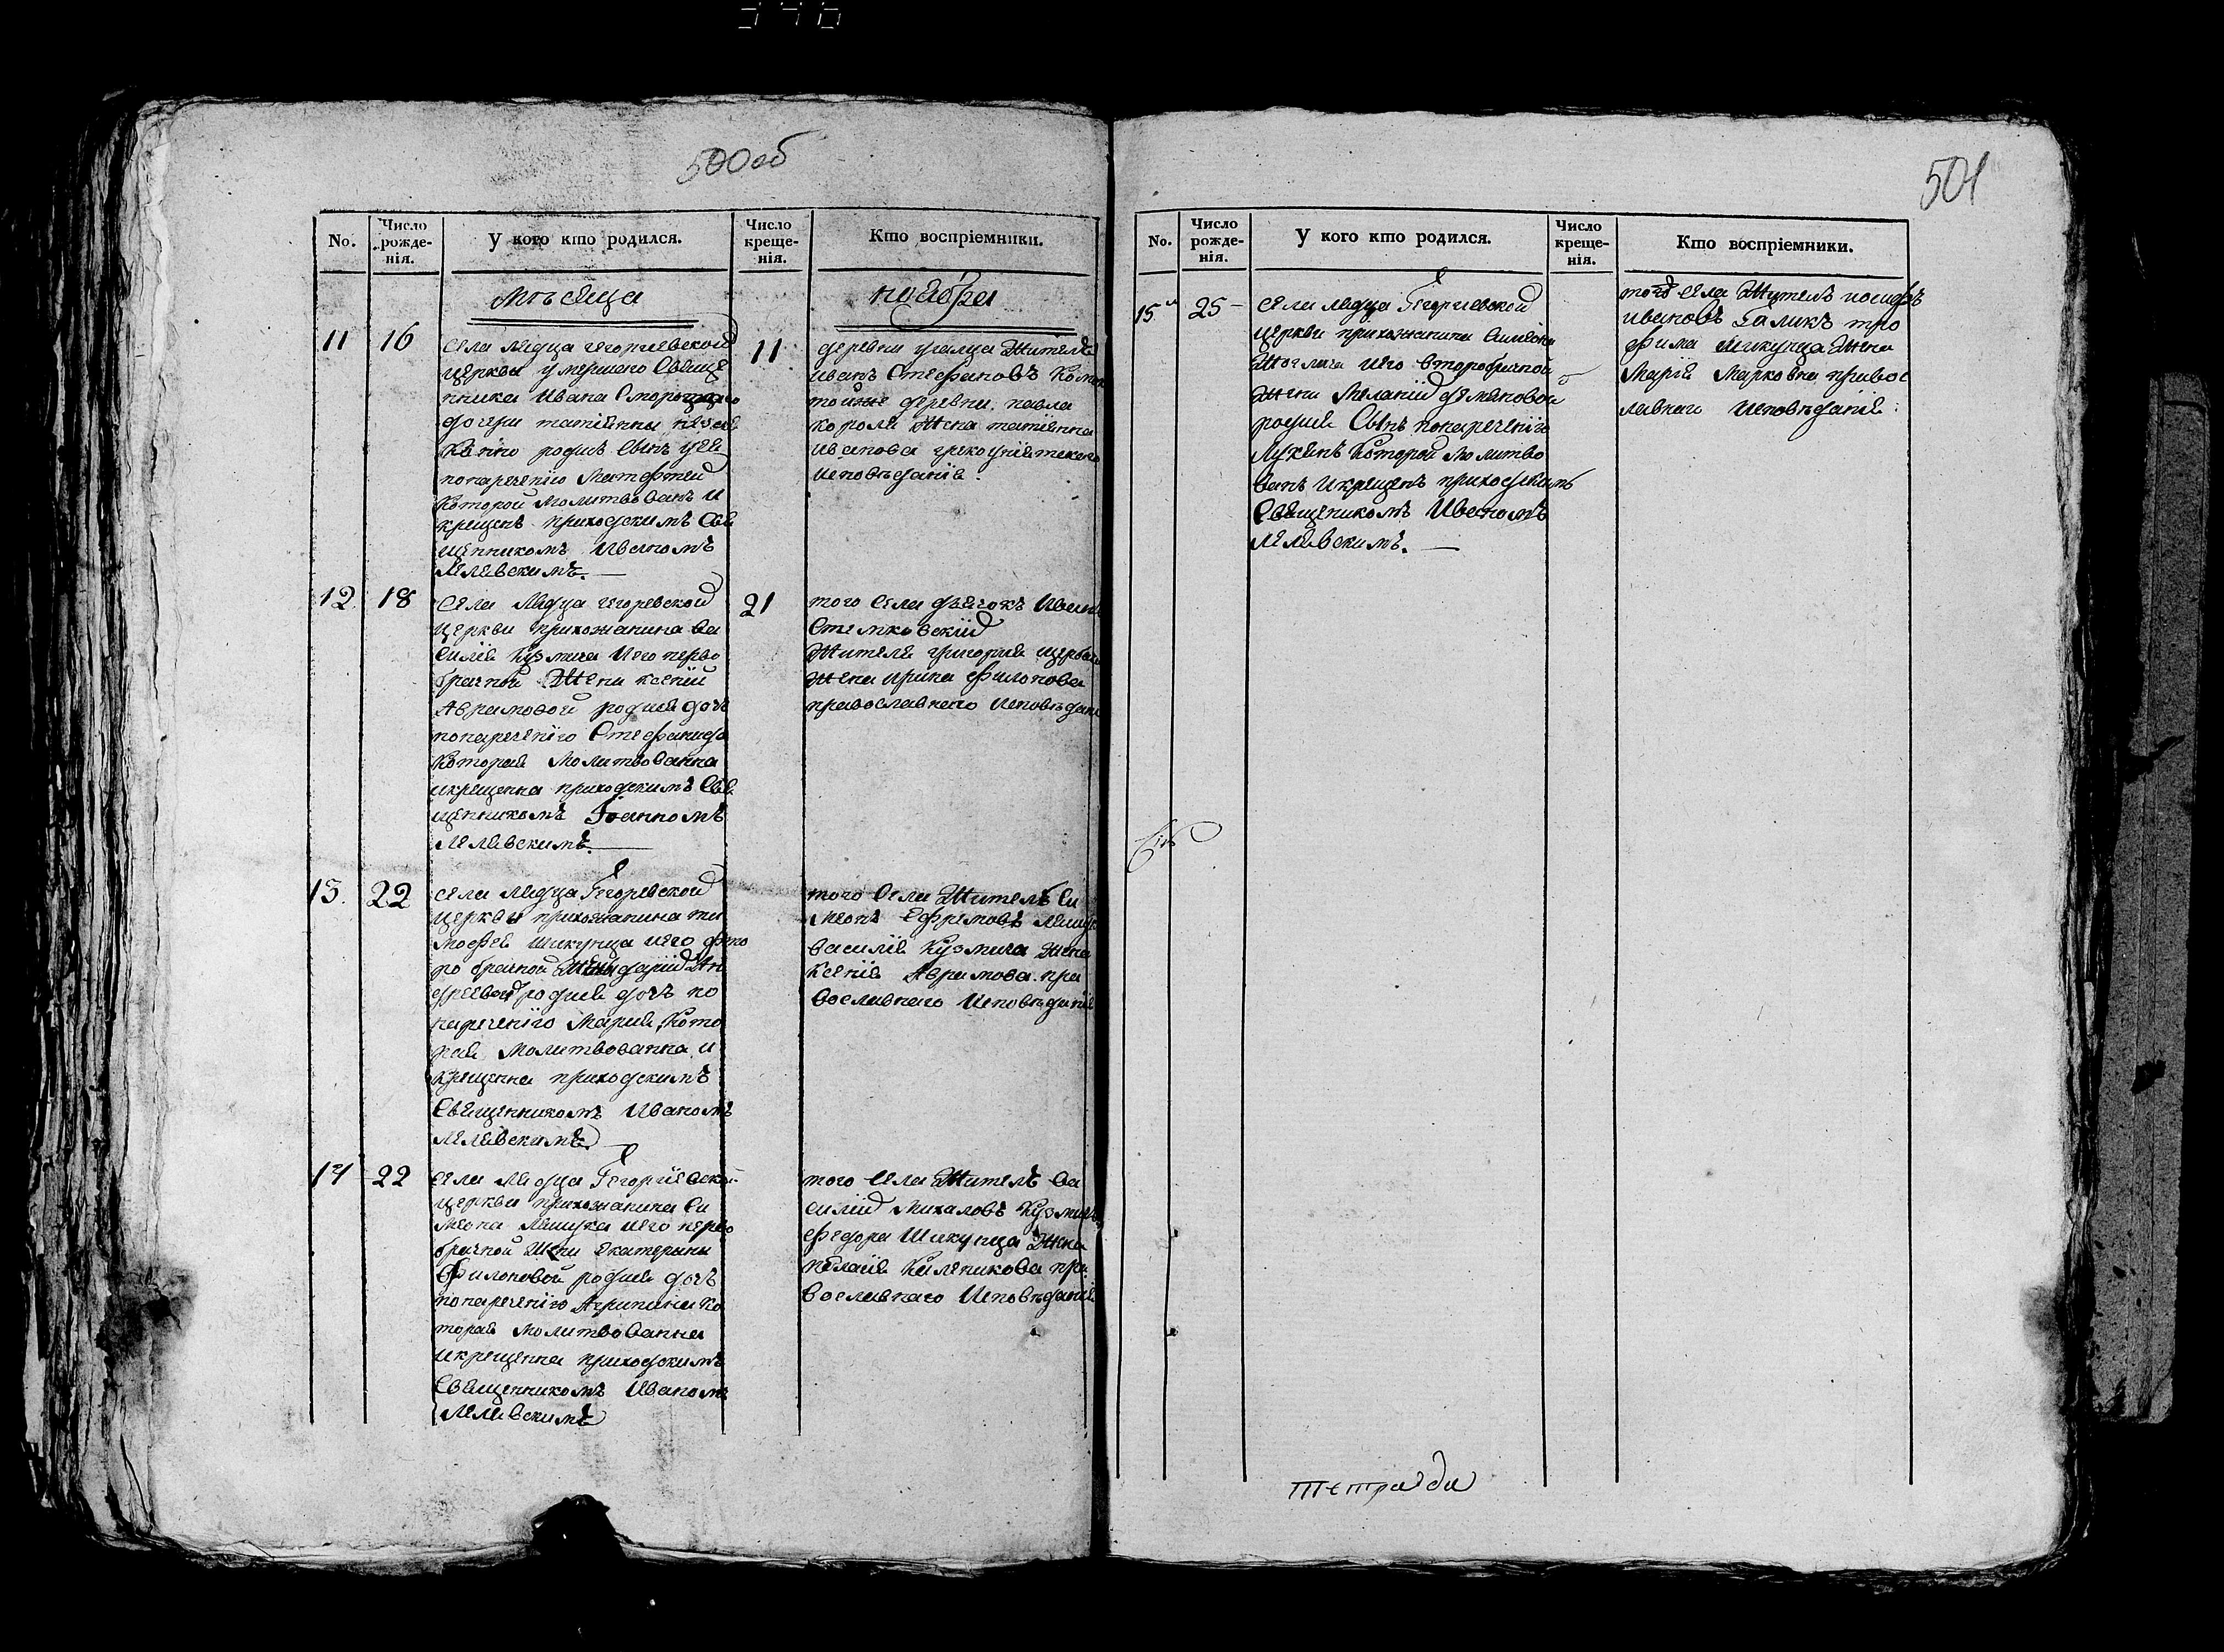 500 об
No.
Число рожде-нія.
У кого кто родился.
Число креще-нія.
Кто воспріемники.
мѣсяца
ноября
11
16
села лядца Гегоргіевской
церкви умершего Свяще
нника Ивана
дочери татіянны
родис Сынъ
понареченію Матфей
которой молитвованъ и
крещенъ приходскимъ Свя
щенникомъ Иваномъ
Лелявскимъ.
11
деревни жителъ
иванъ Стефановъ
тойже деревни павла
короля жена татіянна
иванова греко уніятского
исповѣданія.
12
18
Села Лядца гегоревской
церкви прихожанина ва
силія Кузмича Иего перво
брачной Жени ксеніи
Аврамовой родися дочъ
понареченію Стефанида
которая молитвованна
икрещенна приходскимъ Свя
щенникомъ Іоанномъ
Лелявскимъ.
21
того Села дячокъ Иванъ
Стемковскій
жителя григория
жена ирина филонова
православнаго Исповѣдан
13.
22
села лядца Гегоревской
церкви прихожанина ти
мофея шикунца иего
ро брачной Жены даріи Ан
дреевой родися дочъ по
нареченію Мария, кото
рая молитвованна и
крещенна приходскимъ
Священникомъ Иваномъ
Лелявскимъ
того Села Жителъ Си
меонъ Ефремовъ
василія Кузмича жена
Ксенія Аврамова пра
вославнаго Исповѣданія
14
22
села Лядца Гегоргіевской
церкви прихожанина Си
меона иего перво
брачной Жени Екатерины
Филоновой родися дочъ
понареченію Агрипина ко
торая молитвованна
икрещенна приходскимъ
Священникомъ Иваномъ
Лелявскимъ
того Села Жителъ Ва
силій Михаловъ Кузмичъ
Федора Шикунца Жена
пра
вославнаго Исповѣданія
501
No.
Число рожде-нія.
У кого кто родился.
Число креще-нія.
Кто воспріемники.
15
25
села лядца Гегоргиевской
церкви прихожанина Симеона
иего второбрачной
жени Меланіи демяновой
родися Сынъ понареченію
Лукянъ Которой молитво
ванъ икрещенъ приходскимъ
Свещеникомъ Иваномъ
Лелявскимъ.
того села Жителъ иосифъ
ивановъ Галикъ тро
фима шикунца Жена
Марія Марковна правос
лавнаго исповѣданія.
тетрада